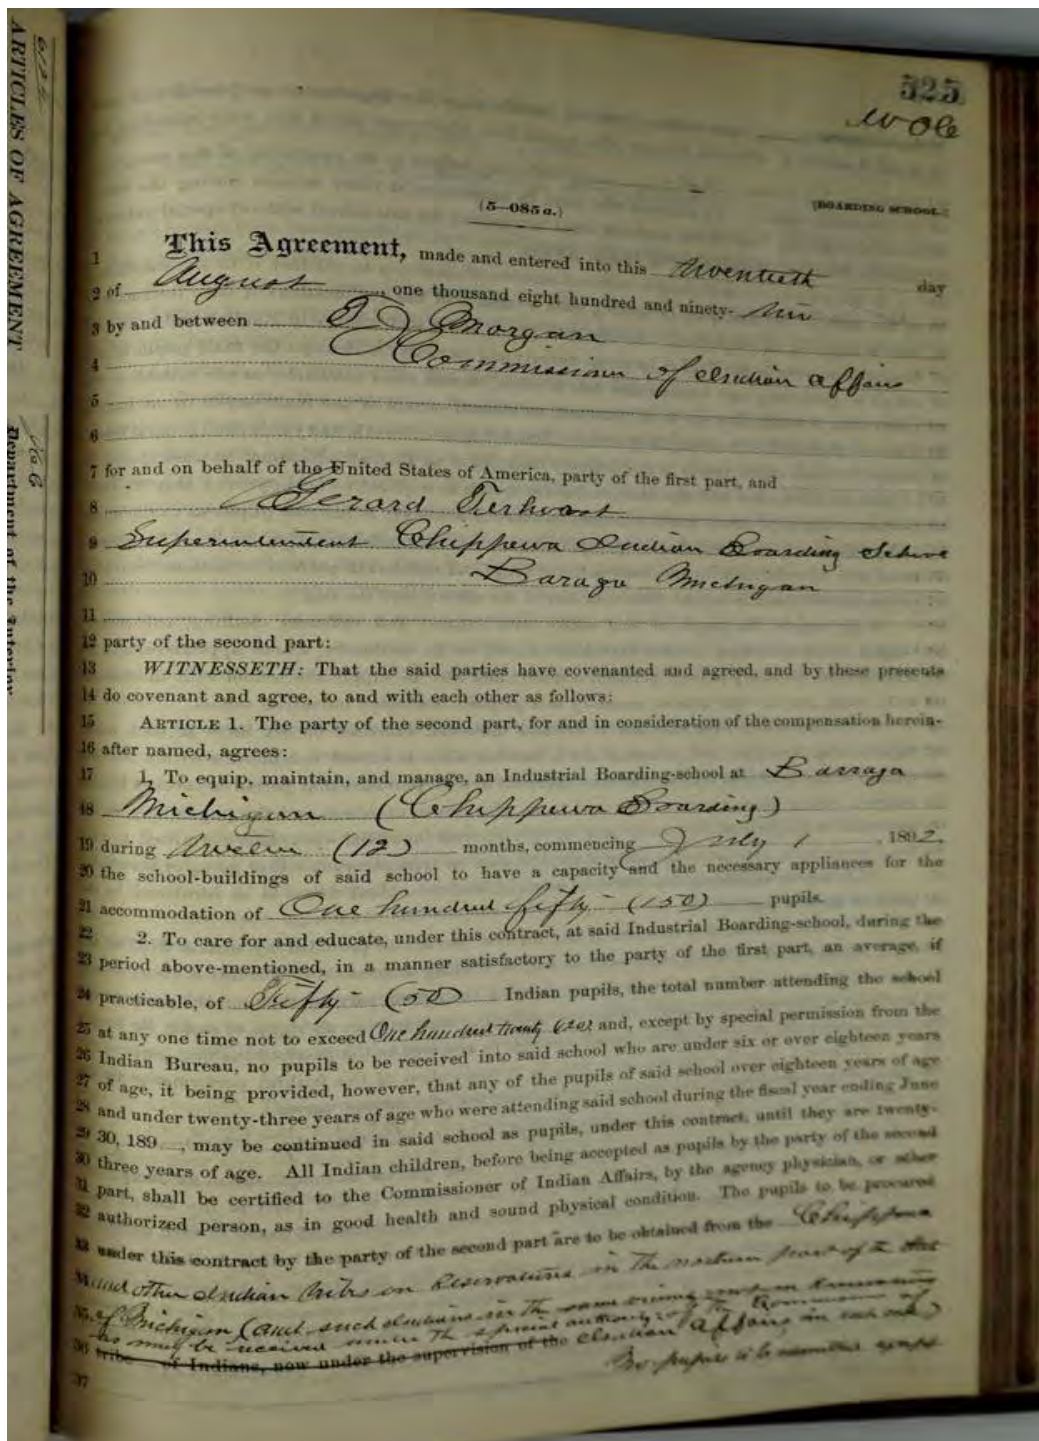 525
(5—085a.)
[BOARDING SCHOOL.]
1 This Agreement, made and entered into this twentieth day
2 of August, one thousand eight hundred and ninety-
3 by and between T J Morgan
4 Commissioner of Indian Affairs
5
6
7 for and on behalf of the United States of America, party of the first part, and
8 Gerard Terhorst
9 Superintendent Chippewa Indian Boarding School
10 Baraga Michigan
11
12 party of the second part:
13 WITNESSETH: That the said parties have covenanted and agreed, and by these presents
14 do covenant and agree, to and with each other as follows:
15 ARTICLE 1. The party of the second part, for and in consideration of the compensation herein-
16 after named, agrees:
17 1. To equip, maintain, and manage, an Industrial Boarding-school at Barraga
18 Michigan (Chippewa Boarding)
19 during Twelve (12) months, commencing July 1, 1892.
20 the school-buildings of said school to have a capacity and the necessary appliances for the
21 accommodation of One hundred fifty (150) pupils.
22 2. To care for and educate, under this contract, at said Industrial Boarding-school, during the
23 period above-mentioned, in a manner satisfactory to the party of the first part, an average, if
24 practicable, of Fifty (50) Indian pupils, the total number attending the school
25 at any one time not to exceed One hundred twenty (120) and, except by special permission from the
26 Indian Bureau, no pupils to be received into said school who are under six or over eighteen years
27 of age, it being provided, however, that any of the pupils of said school over eighteen years of age
28 and under twenty-three years of age who were attending said school during the fiscal year ending June
29 30, 189 , may be continued in said school as pupils, under this contract, until they are twenty-
30 three years of age. All Indian children, before being accepted as pupils by the party of the second
31 part, shall be certified to the Commissioner of Indian Affairs, by the agency physician, or other
32 authorized person, as in good health and sound physical condition. The pupils to be procured
33 under this contract by the party of the second part are to be obtained from the Chippewa
34 and other Indian tribes on Reservations in the northern part of the State
35 of Michigan (and such Indians in the same vicinity
as may be received under the special authority of the Commissioner of
36 tribe of Indians, now under the supervision of the Indian Affairs in each case)
No pupils to be
37
ARTICLES OF AGREEMENT
No. 6
Department of the Interior